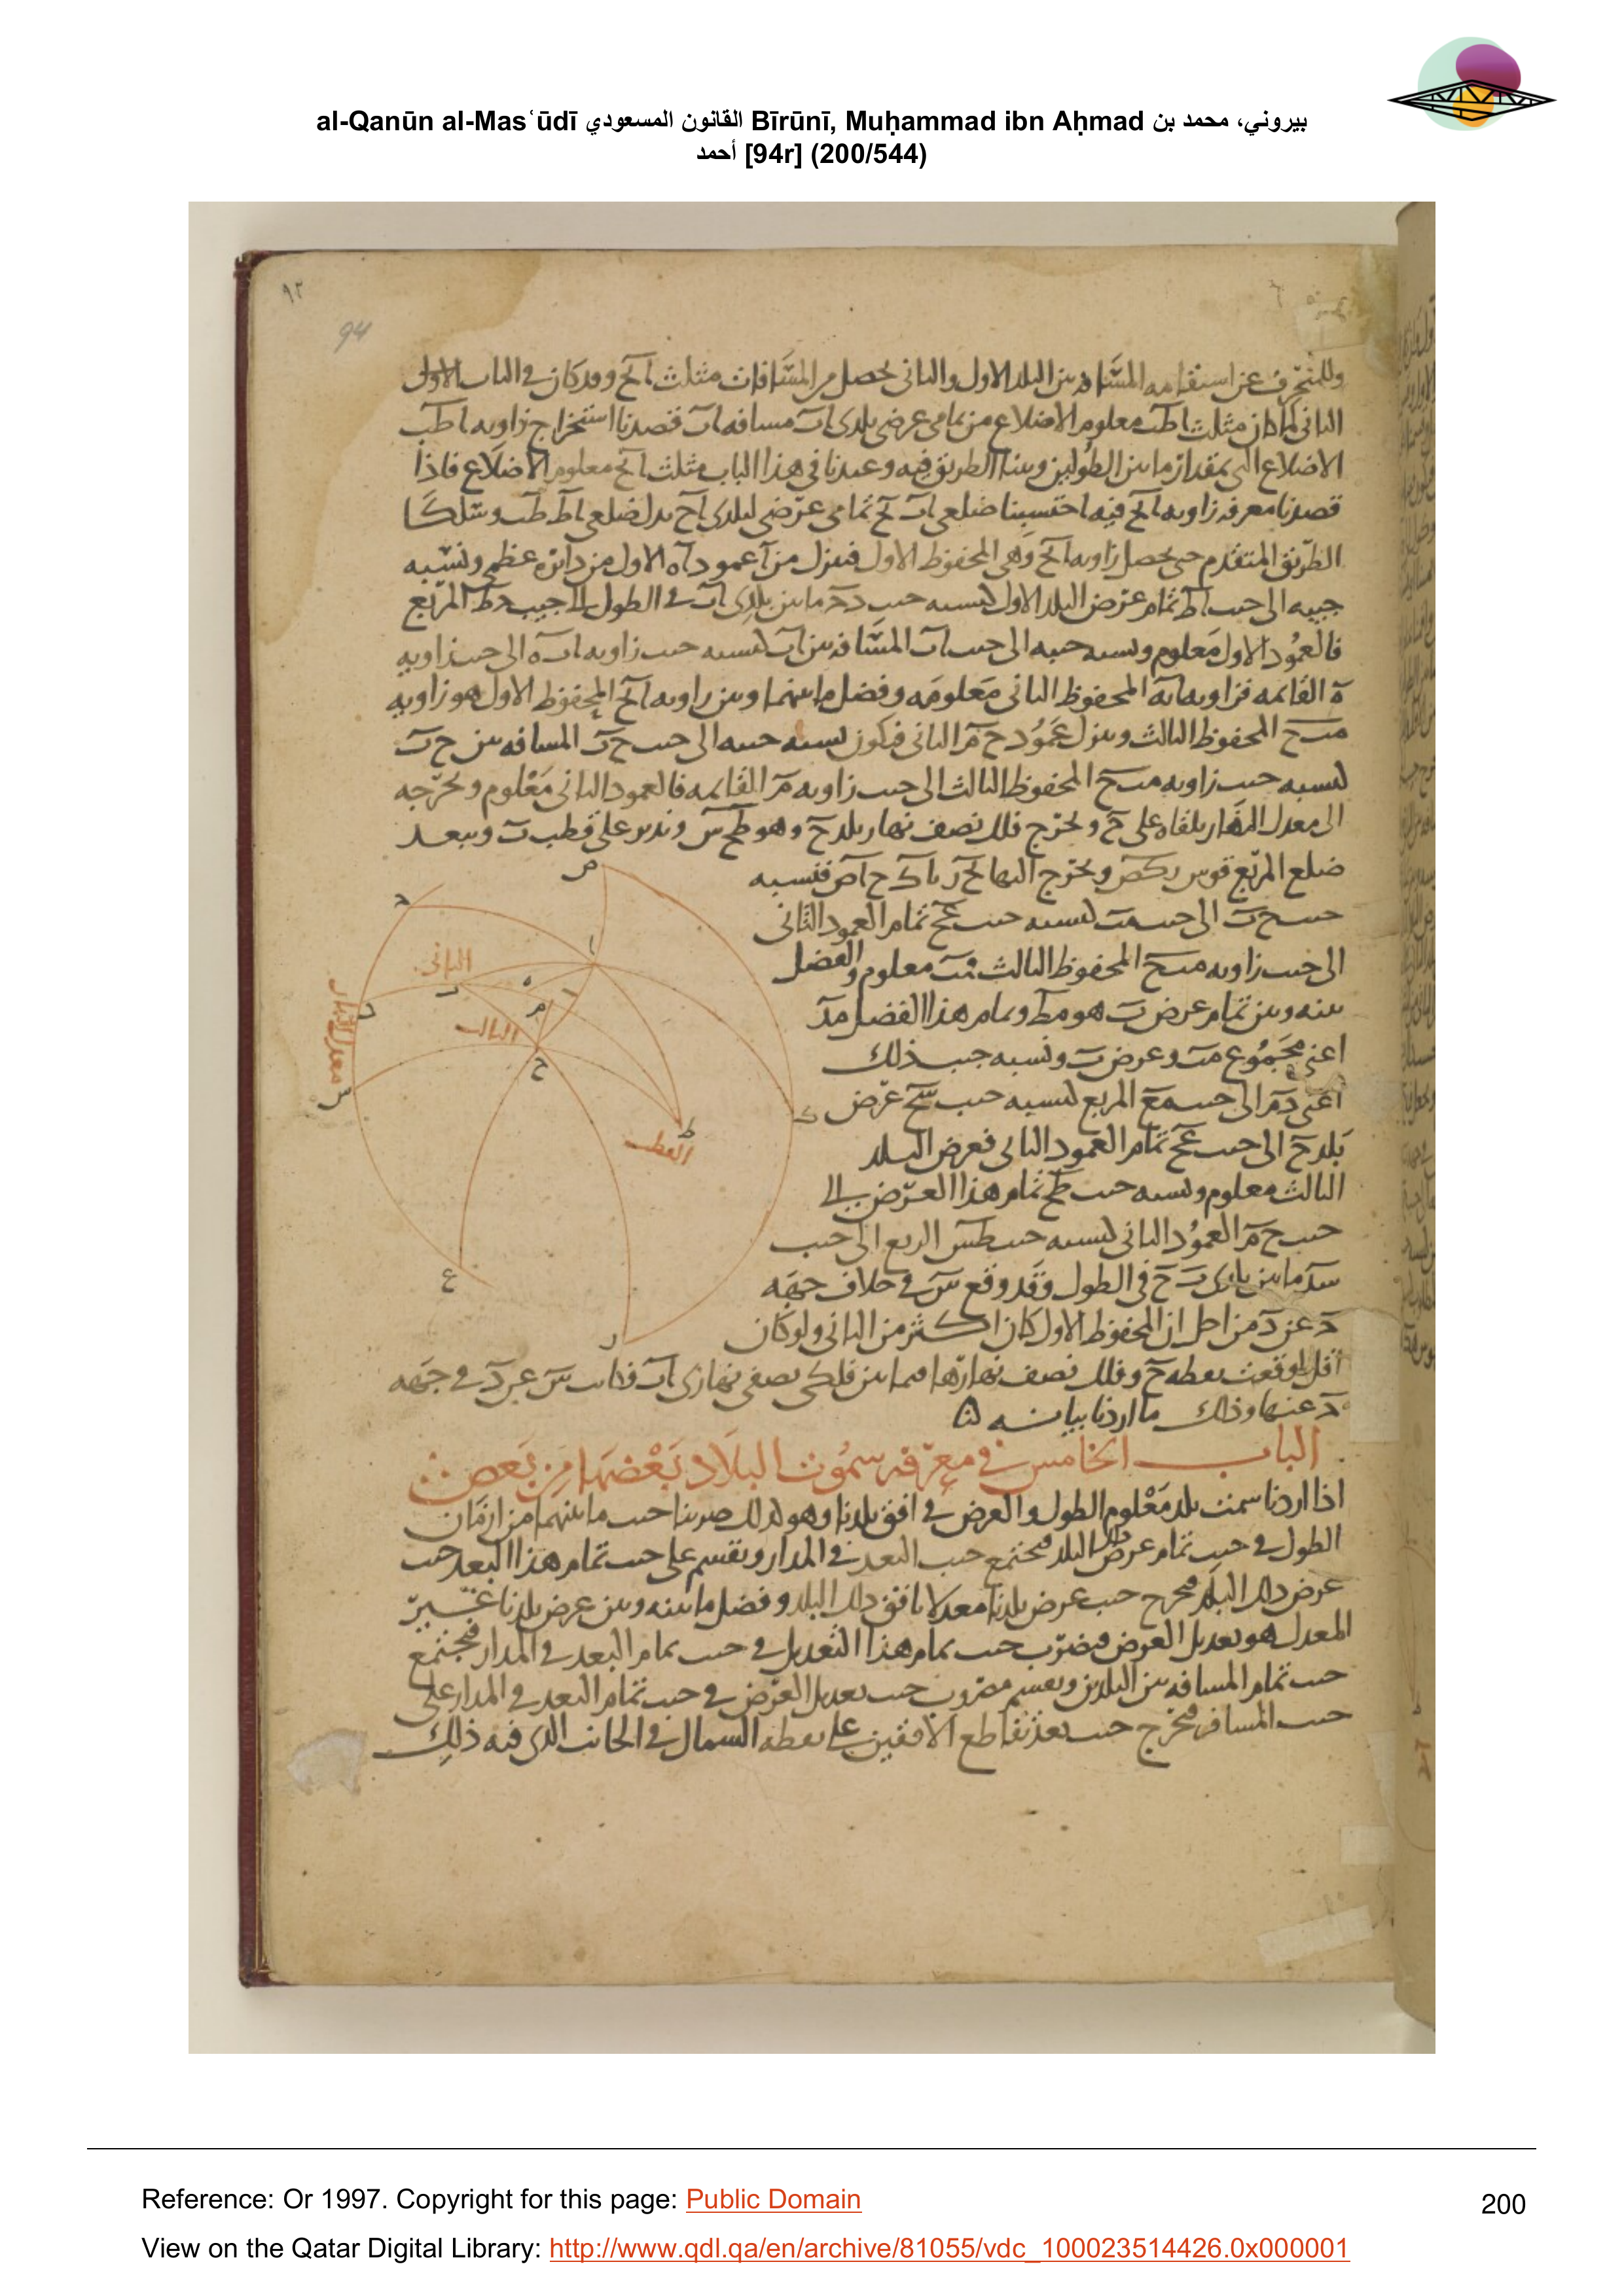 al-Qanūn al-Masʿūdī القانون المسعودي Bīrūnī, Muḥammad ibn Aḥmad بيروني، محمد بن
أحمد [94r] (200/544)
٩٢
94
وللمنحرف عن استقامه المسافه بين البلد الاول والثانى يحصل من المسافات مثلث ابح وقد كان فى الباب الاول
الثانى كما كان مثلث اطب معلوم الاضلاع من تمامى عرضى بلدى اب مسافه اب قصدنا استخراج زاويه اطب
الاضلاع التى بمقدار ما بين الطولين وبينا الطريق فيه وعندنا فى هذا الباب مثلث ابح معلوم الاضلاع فاذا
قصدنا معرفه زاويه ابح فيه احتسبنا ضلعى اب بح تمامى عرضى لبلدى اح بدل ضلعى اط طب وسلكنا
الطريق المتقدم حتى يحصل زاويه ابح وهى المحفوظ الاول فننزل من ا عمود اه الاول من دائره عظمى ونسبه
جيبه الى جيب اط تمام عرض البلد الاول كنسبه جيب دح ما بين بلدى اب فى الطول الى جيب دط المربع
فالعمود الاول معلوم ونسبه جيبه الى جيب اب المسافه بين اب كنسبه جيب زاويه ابه الى جيب زاويه
ه القائمه فزاويه ابه المحفوظ الثانى معلومه وفضل ما بينهما وبين زاويه ابح المحفوظ الاول هو زاويه
مبح المحفوظ الثالث وننزل عمود حم الثانى فيكون نسبه جيبه الى جيب حب المسافه بين حب
كنسبه جيب زاويه مبح المحفوظ الثالث الى جيب زاويه م القائمه فالعمود الثانى معلوم ونخرجه
الى معدل النهار يلقاه على ع ونخرج فلك نصف نهار بلد ح وهو طحس وندير على قطب ب وببعد
ضلع المربع قوس ركص ونخرج اليها بحر باك حاص فنسبه
جيب حب الى جيب مب كنسبه جيب عح تمام العمود الثانى
الى جيب زاويه مبح المحفوظ الثالث فمب معلوم والفضل
بينه وبين تمام عرض ب هو مط وتمام هذا الفضل مد
اعنى مجموع مب وعرض ب ونسبه جيب ذلك
اعنى دم الى جيب مع المربع كنسبه جيب سح عرض
بلد ح الى جيب عح تمام العمود الثانى فعرض البلد
الثالث معلوم ونسبه جيب طح تمام هذا العرض الى
جيب حم العمود الثانى كنسبه جيب طس الربع الى جيب
سد ما بين بلدى ب ح فى الطول وقد وقع س فى خلاف جهه
د عن د من اجل ان المحفوظ الاول كان اكثر من الثانى ولو كان
اقل لوقعت نقطه ح وفلك نصف نهارها فيما بين فلكى نصفى نهارى اب فكانت س عن د فى جهه
د عنها وذلك ما اردنا بيانه
الباب الخامس فى معرفه سموت البلاد بعضها من بعض
اذا اردنا سمت بلد معلوم الطول والعرض فى افق بلدنا وهو كذلك ضربنا جيب ما بينهما من ازمان
الطول فى جيب تمام عرض ذلك البلد فيجتمع جيب البعد فى المدار ونقسم على جيب تمام هذا البعد جيب
عرض ذلك البلد فيخرج جيب عرض بلدنا معدلا بافق ذلك البلد وفضل ما بينه وبين عرض بلدنا غير
المعدل هو تعديل العرض فيضرب جيب تمام هذا التعديل فى جيب تمام البعد فى المدار فيجتمع
جيب تمام المسافه بين البلدين ونقسم مضروب جيب تعديل العرض فى جيب تمام البعد فى المدار على
جيب المسافه فيخرج جيب بعد تقاطع الافقين على نقطه الشمال فى الجانب الذى فيه ذلك
ص
د
ا
الثانى
ب
ه
م
الثالث
ح
معدل النهار
س
ط
القطب
ك
ع
ر
Reference: Or 1997. Copyright for this page: Public Domain
200
View on the Qatar Digital Library: http://www.qdl.qa/en/archive/81055/vdc_100023514426.0x000001